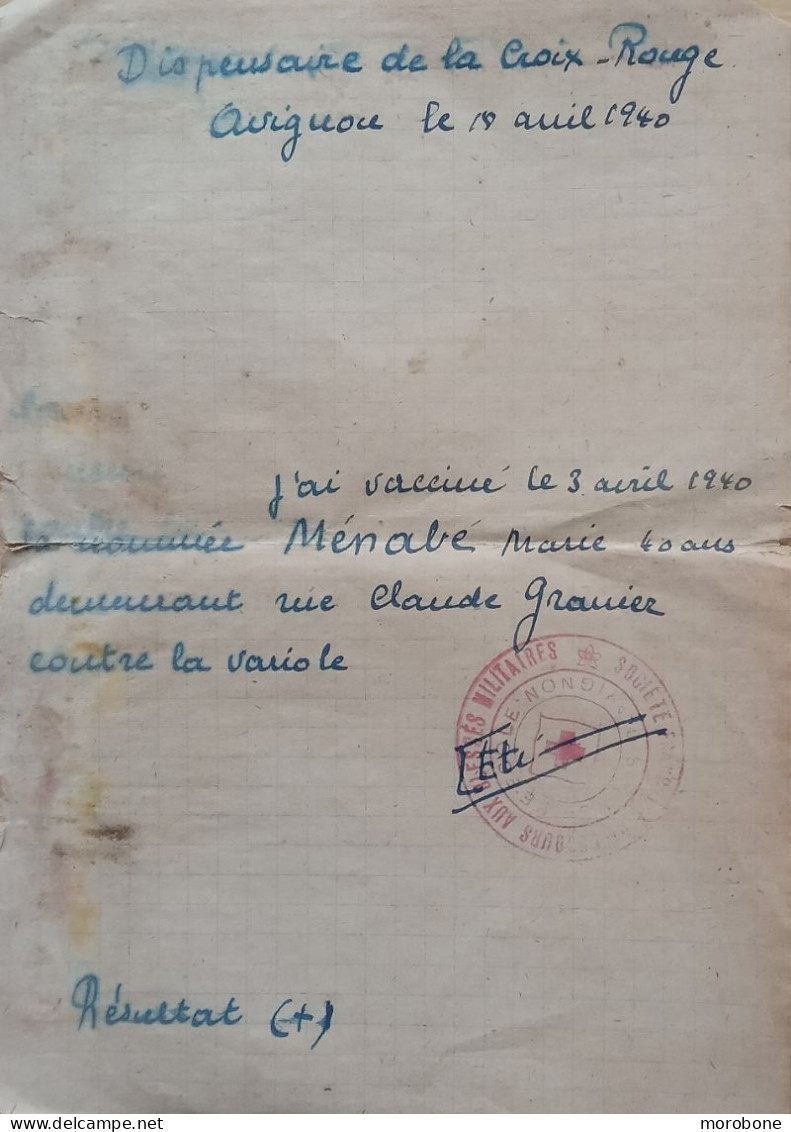 Dispensaire de la Croix-Rouge
Avignon le 18 avril 1940
J'ai vacciné le 3 avril 1940
la nommée Ménabé Marie 40 ans
demeurant rue Claude Granier
contre la variole
SOCIÉTÉ SECOURS AUX BLESSÉS MILITAIRES
AVIGNON
Résultat (+)
delcampe.net
morobone